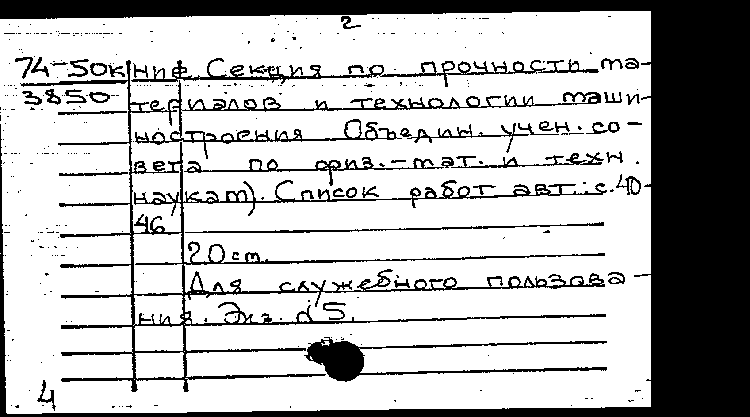 2
74-50к ний. Секция по прочности ма-
3850 териалов и технологии маши-
ностроения Объедин. учен. со-
вета по физ.-мат. и техн.
наукам). Список работ авт.: с. 40-
46
20 см.
Для служебного пользова-
ния. Экз. №5.
4